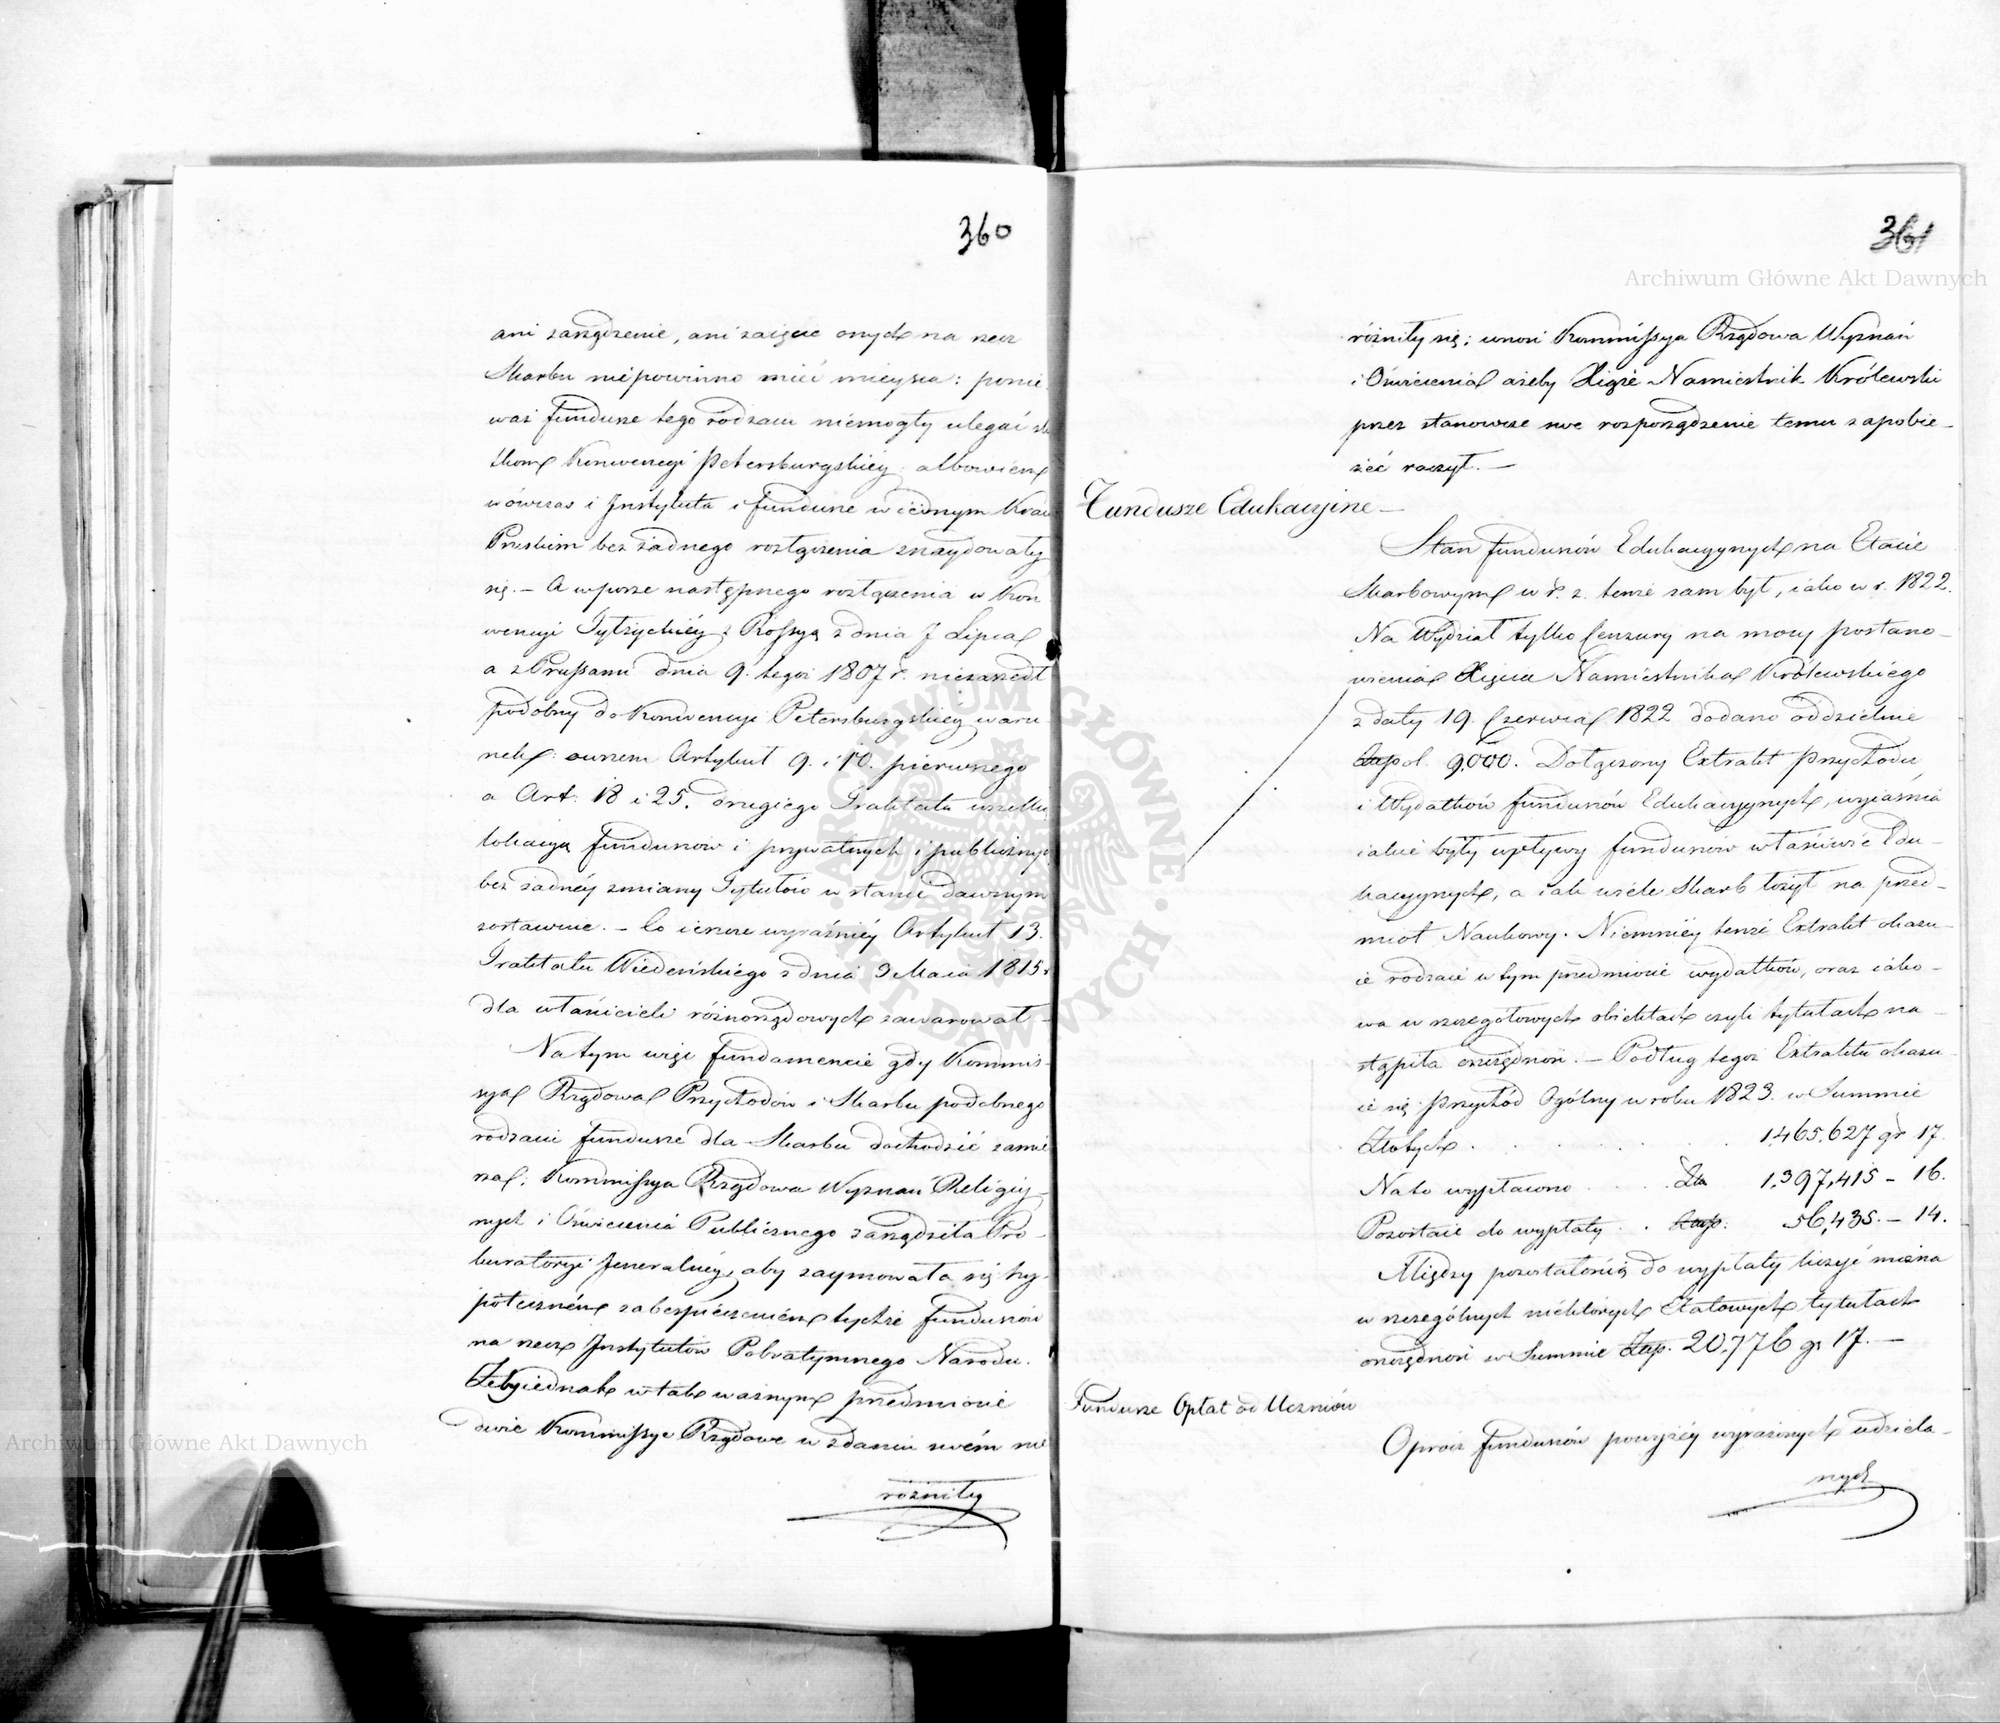 360
ani zarządzenie, ani zaięcie onych na rzecz
Skarbu niépowinno mieć mieysca: ponie
waż fundusze tego rodzaiu niémogły ulegać
Konwencyi Petersburgskiéy albowiem
wówczas i Instytuta i fundusze w iednym Kraiu
Pruskim bez żadnego rozłączenia znaydowały
się. – A w porze następnego rozłączenia w Kon
wencyi Tylżyckiéy z Rossyą z dnia 7 Lipca
a z Prussami dnia 9. tegoż 1807 r. niezaszedł
podobny do Konwencyi Petersburgskiéy waru
nek: owszem Artykuł 9. i 10. pierwszego
a Art: 18 i 25. drugiego Traktatu wszelką
lokacyą funduszów i prywatnych i publicznych
bez żadnéy zmiany Tytułów w stanie dawnym
zostawuie. – Co ieszcze wyraźniéy Artykuł 13.
Traktatu Wiedeńskiego z dnia 3 Maia 1815 r
dla właścicieli różnorządowych zawarował –
Na tym więc fundamencie gdy Kommis-
sya Rządowa Przychodów i Skarbu podobnego
rodzaiu fundusze dla Skarbu dochodzić zamie
rza; Kommissya Rządowa Wyznań Religiy-
nych i Oświecenia Publicznego zarządziła Pro-
kuratoryi Jeneralnéy, aby zaymowała się hy-
poteczném zabespieczeniem tychże funduszów
na rzecz Instytutów Pobratymnego Narodu.
Żeby iednak w tak ważnym przedmiocie
dwie Kommissye Rządowe w zdaniu swém nie
różniły
361
Archiwum Główne Akt Dawnych
różniły się; wnosi Kommissya Rządowa Wyznań
i Oświecenia ażeby Xiąże Namiestnik Królewski
przez stanowcze swe rozporządzenie temu zapobie-
żeć raczył. –
Fundusze Edukacyine –
Stan funduszów Edukacyynych na Etacie
Skarbowym w r. z. tenże sam był, iako w r. 1822.
Na Wydział tylko Cenzury na mocy postano-
wienia Xięcia Namiestnika Królewskiego
z daty 19. Czerwca 1822 dodano oddzielnie
Złp. 9,000. Dołączony Extrakt Przychodu
i Wydatków funduszów Edukacyynych, wyiaśnia
iakie były wpływy funduszów właściwie Edu-
kacyynych, a iak wiele Skarb łożył na przed-
miot Naukowy. Niemniéy tenże Extrakt okazu-
ie rodzaie w tym przedmiocie wydatków, oraz iako-
wa w szczegółowych obiektach czyli tytułach na-
stąpiła oszczędność. – Podług tegoż Extraktu okazu-
ie się Przychód Ogólny w roku 1823. w Summie
Złotych . . . . . . 1,465,627 gr 17.
Na to wypłacono . . . . Złp 1,397,415 – 16.
Pozostaie do wypłaty . . Złp. 56,435. – 14.
Między pozostałością do wypłaty liczyć można
w szczególnych niéktórych Etatowych tytułach
oszczędność w Summie Złp. 20,776 gr 17. –
Fundusze Opłat od Uczniów
Oprócz funduszów powyżéy wyrażonych udziela-
nych
ARCHIWUM GŁÓWNE AKT DAWNYCH
Archiwum Główne Akt Dawnych